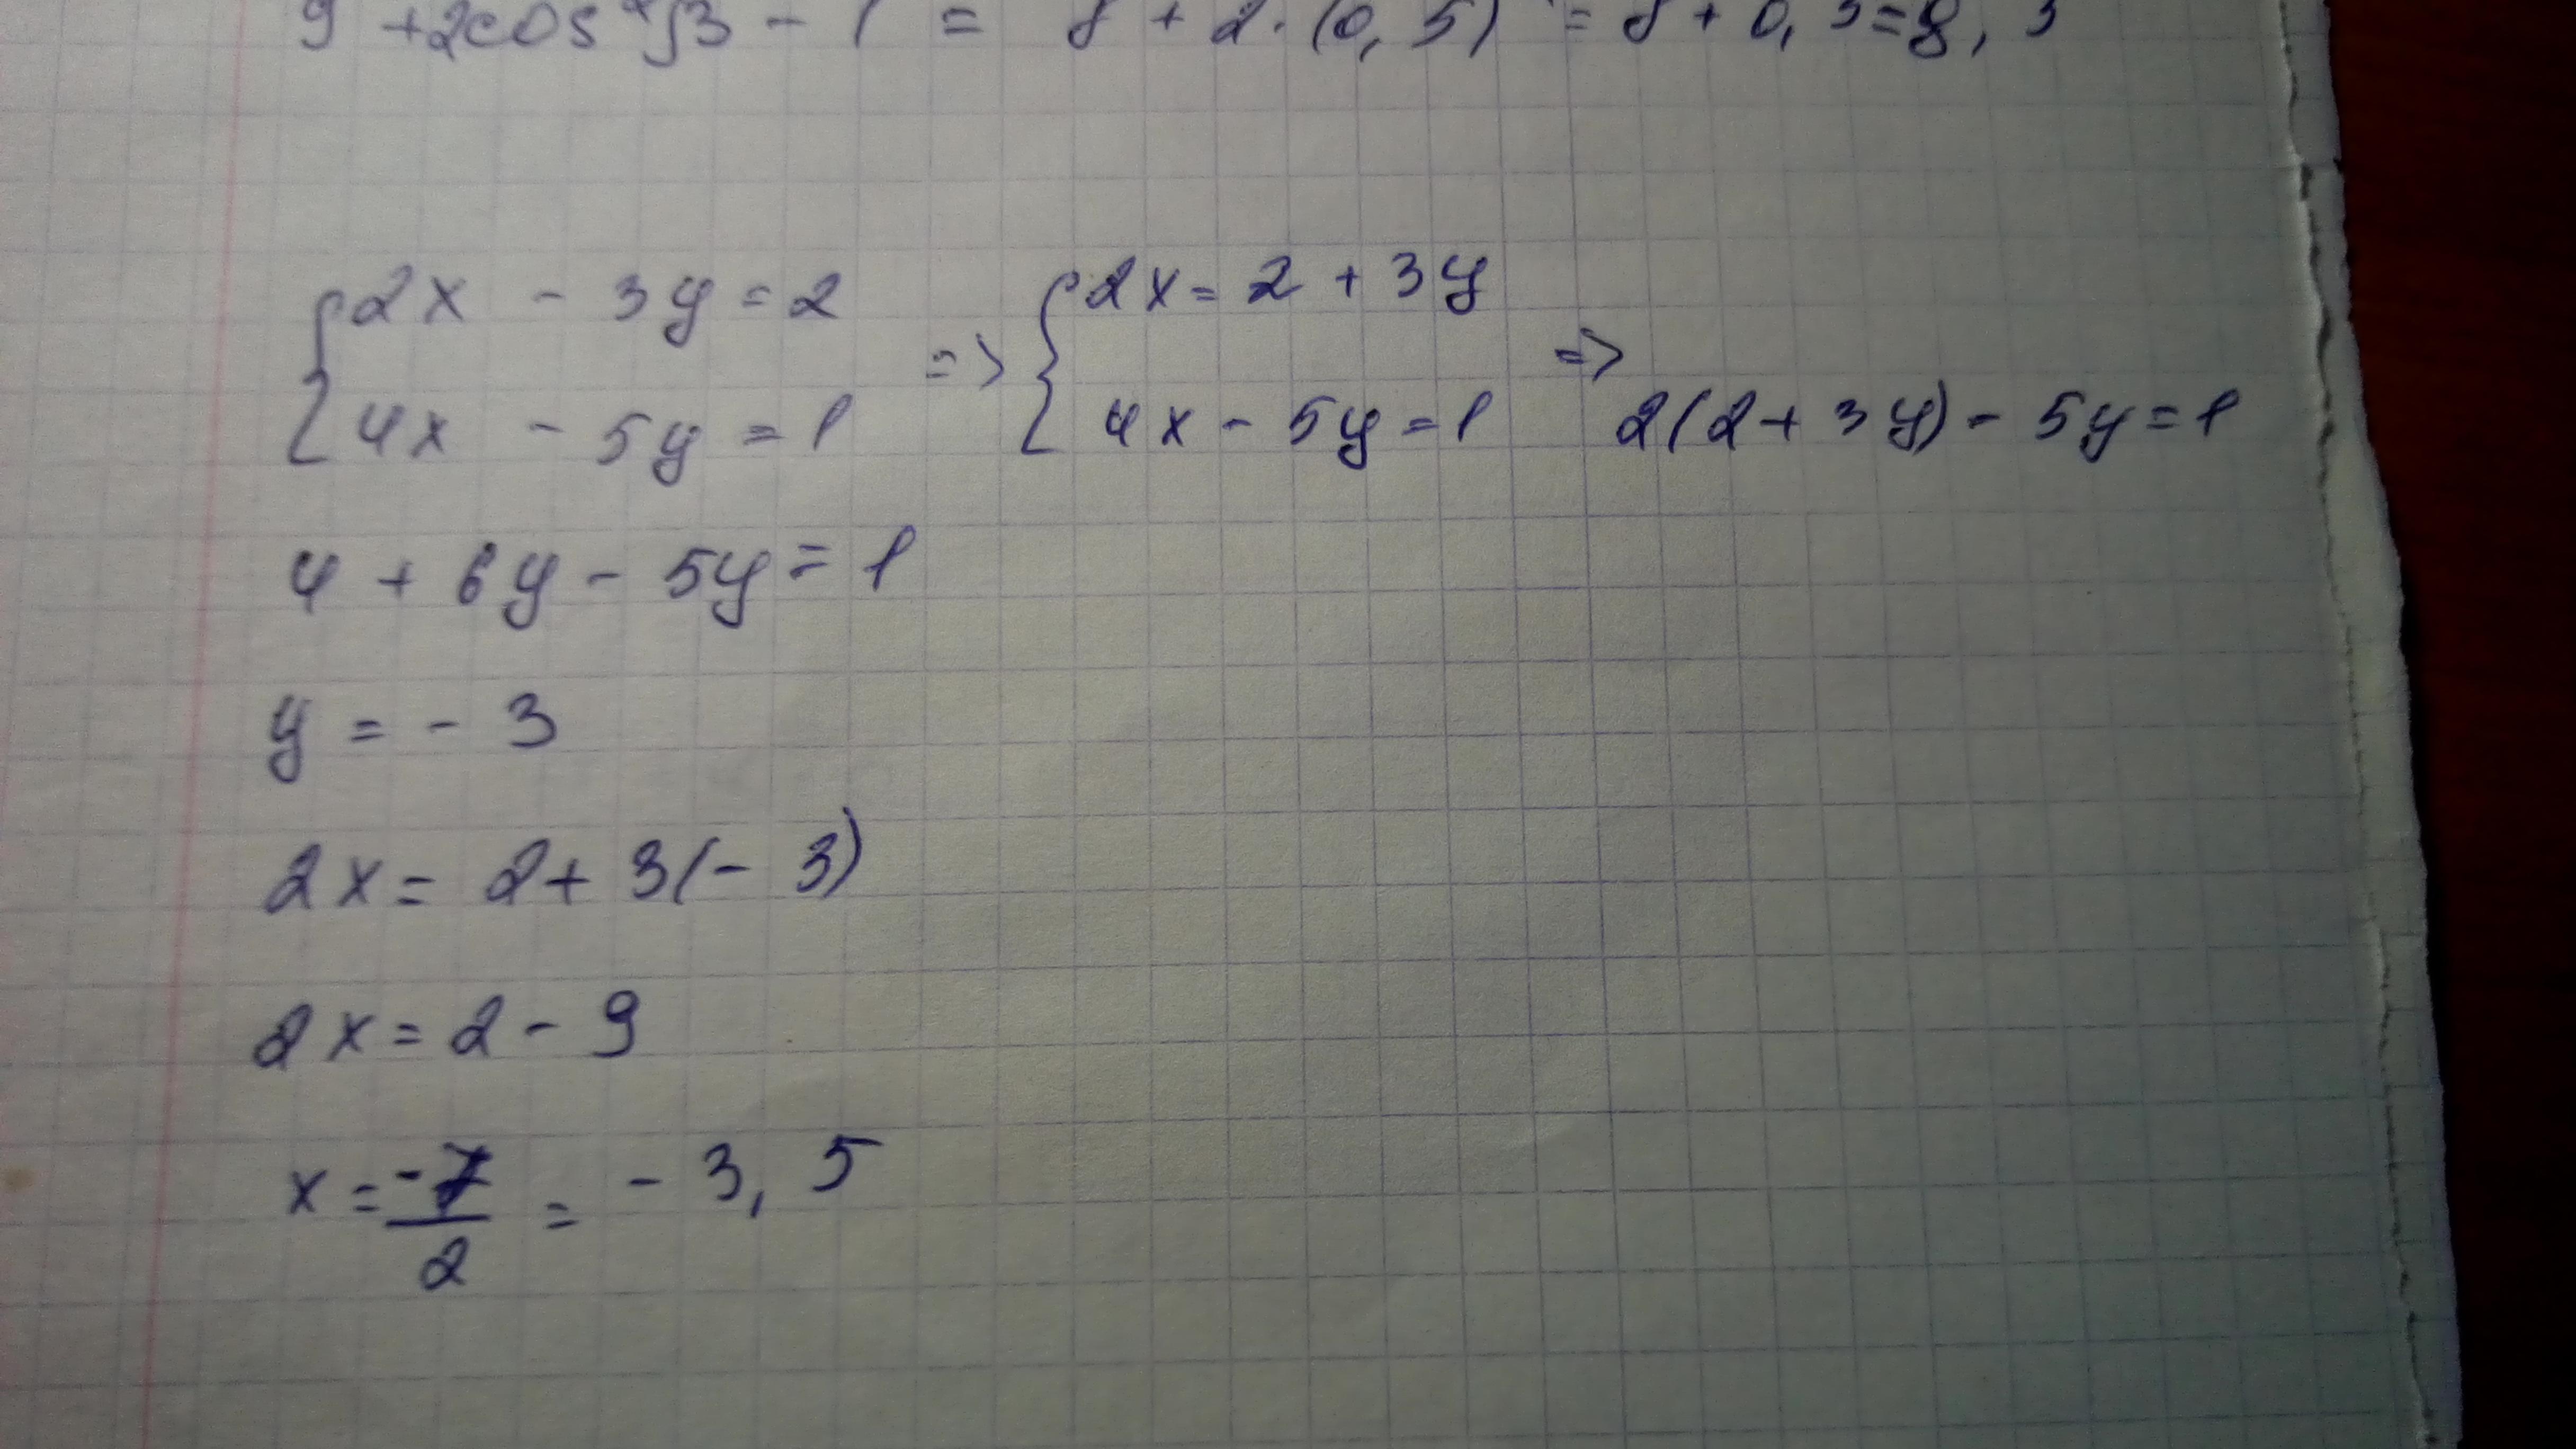 9 + 2cos²β - 1 = 8 + 2 · (0,5)² = 8 + 0,5 = 8,5
{2x - 3y = 2 => {2x = 2 + 3y =>
{4x - 5y = 1 {4x - 5y = 1 2(2 + 3y) - 5y = 1
4 + 6y - 5y = 1
y = - 3
2x = 2 + 3(- 3)
2x = 2 - 9
x = -7/2 = - 3,5